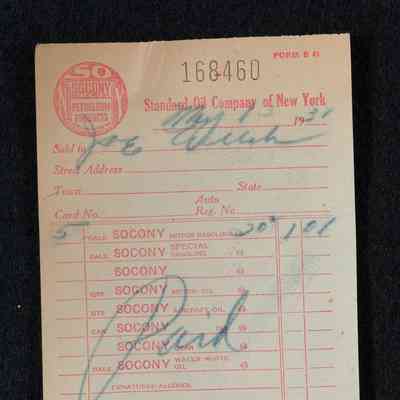 FORM B 41
SO
SOCONY
PETROLEUM
PRODUCTS
168460
Standard Oil Company of New York
May 1931
Sold to Joe Welsh
Street Address
Town State
Card No. Auto Reg. No.
5 GALS SOCONY MOTOR GASOLINE 20² 1 01
GALS SOCONY SPECIAL GASOLINE @
SOCONY
QTS SOCONY MOTOR OIL @
QTS SOCONY AIRCRAFT OIL @
CAN SOCONY @
SOCONY @
GALS SOCONY WATER WHITE OIL @
DENATURED ALCOHOL
Paid